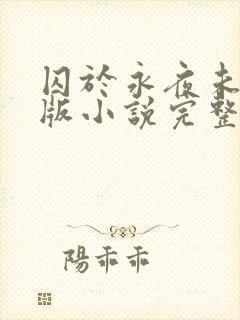 囚於永夜未
版小說完整
陽乖乖